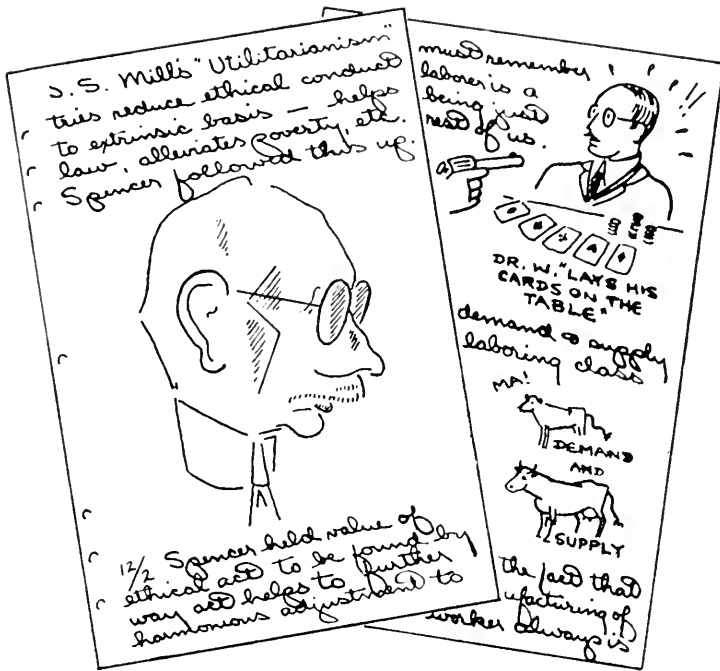 J. S. Mill's "Utilitarianism"
tries reduce ethical conduct
to extrinsic basis — helps
law, alleviates poverty, etc.
Spencer followed this up.
12/2 Spencer held value of
ethical act to be found by
way act helps to further
harmonious adjustment to
must remember
laborer is a
being just
rest of us.
DR. W. "LAYS HIS
CARDS ON THE
TABLE"
demand & supply
laboring class
MA!
DEMAND
AND
SUPPLY
the fact that
ufacturing of
worker always is